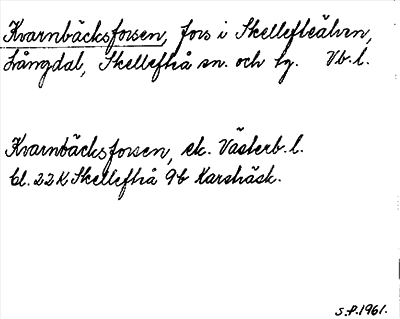 Kvarnbäcksforsen, fors i Skellefteälven,
Långdal, Skellefteå sn. och tg. Vb. l.
Kvarnbäcksforsen, ek. Västerb. l.
bl. 22K Skellefteå 9b Karsträsk.
S.P. 1961.